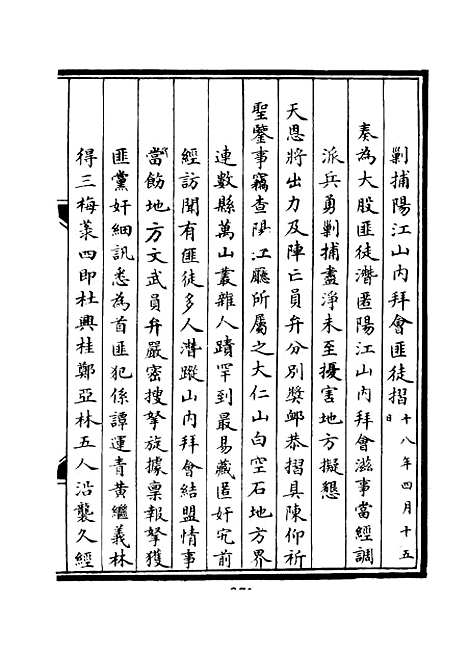 剿捕陽江山内拜會匪徒摺十八年四月十五日
奏為大股匪徒潛匿陽江山内拜會滋事當經調
派兵勇剿捕盡淨未至擾害地方擬懇
天恩將出力及陣亡員弁分別獎䘏恭摺具陳仰祈
聖鑒事竊查陽江廳所屬之大仁山白空石地方界
連數縣萬山叢雜人蹟罕到最易藏匿奸宄前
經訪聞有匪徒多人潛蹤山内拜會結盟情事
當飭地方文武員弁嚴密搜拏旋據稟報拏獲
匪黨奸細訊悉為首匪犯係譚運青黃繼義林
得三梅葉四即杜興桂鄭亞林五人沿襲久經